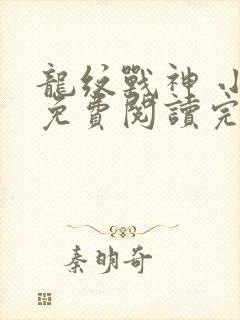 龍紋戰神 小
免費閱讀完
秦明奇